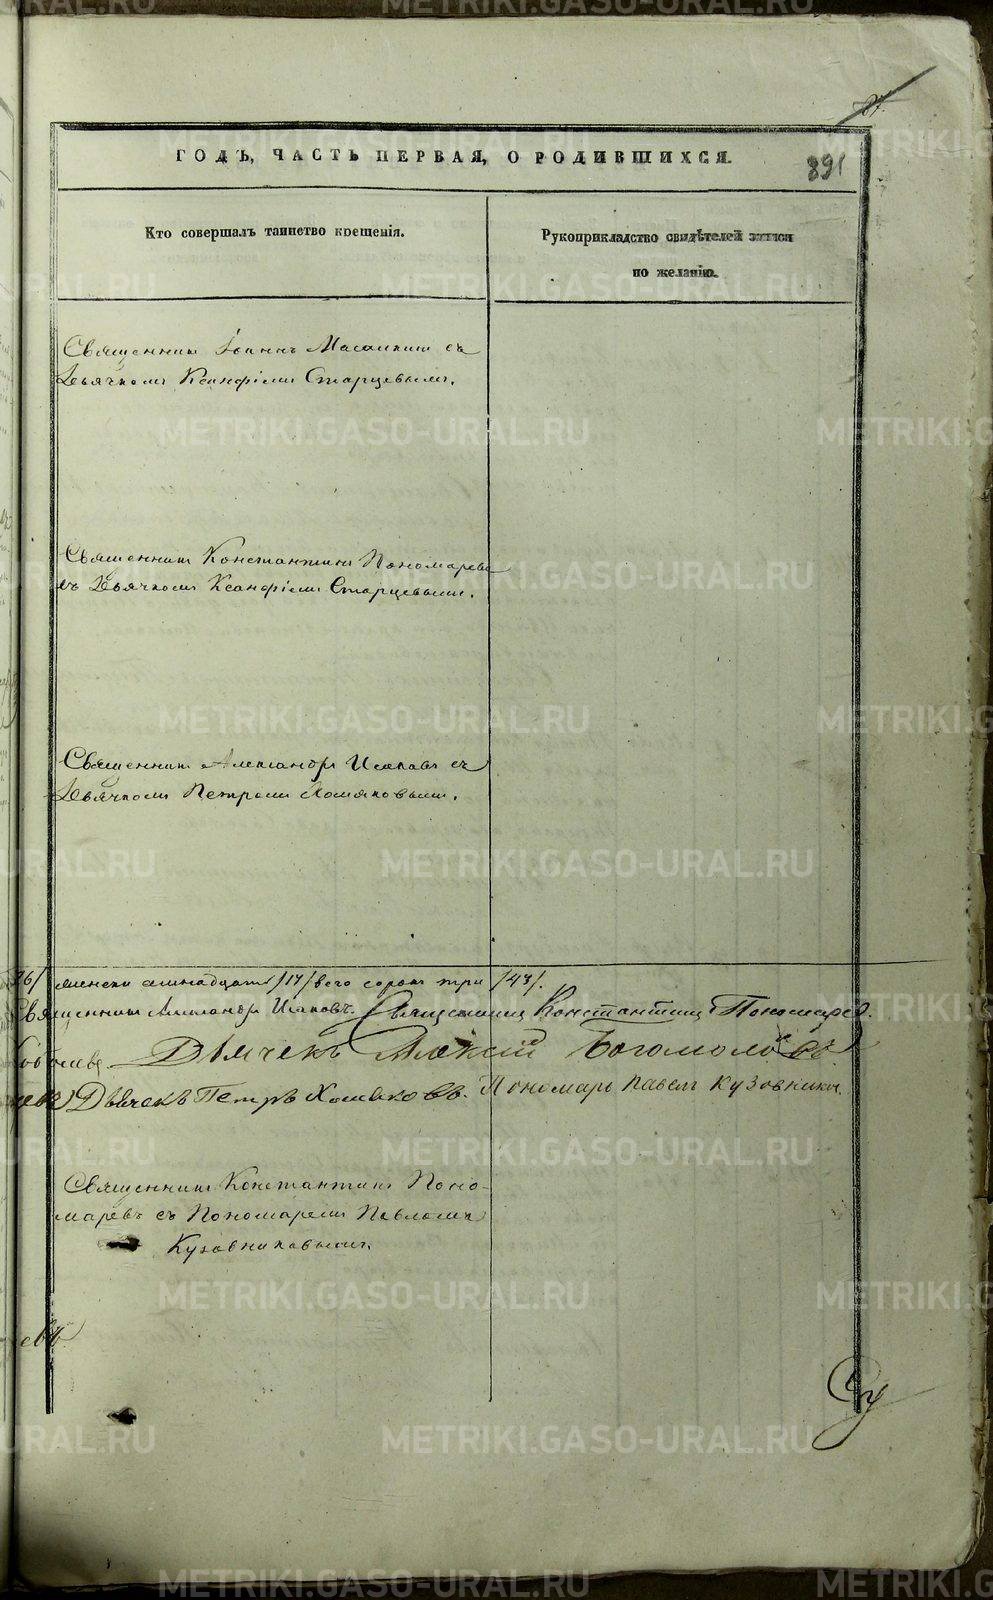 27.
ГОДЪ, ЧАСТЬ ПЕРВАЯ, О РОДИВШИХСЯ.
891
Кто совершалъ таинство крещенія.
Рукоприкладство свидѣтелей записи
по желанію.
Священникъ Іоаннъ съ
Дьячкомъ Ксанфіемъ Старцевымъ.
Священникъ Константинъ Пономаревъ
съ Дьячкомъ Ксанфіемъ Старцевымъ.
Священникъ Александръ Исаковъ съ
Дьячкомъ Петромъ Хомяковымъ.
26/ женска семнадцать /17/ всего сорокъ три /43/.
Священникъ Александръ Исаковъ. Священникъ Константинъ Пономаревъ.
Дьячекъ Алексій Богомоловъ
Дьячекъ Петръ Хомяковъ. Пономарь Павелъ Кузовниковъ
Священникъ Константинъ Поно-
маревъ съ Пономаремъ Павломъ
Кузовниковымъ.
евъ
METRIKI.GASO-URAL.RU